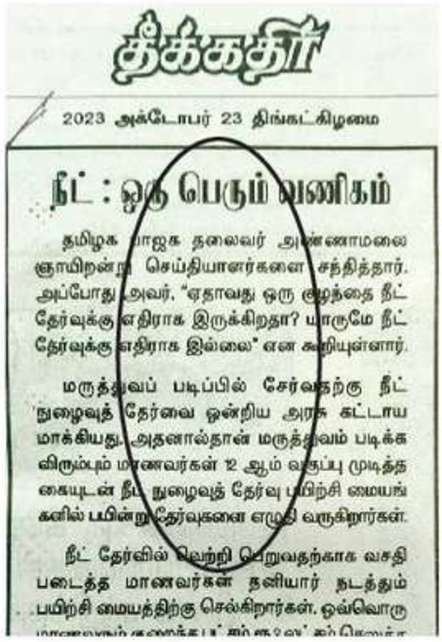 தீக்கதிர்
2023 அக்டோபர் 23 திங்கட்கிழமை
நீட் : ஒரு பெரும் வணிகம்
தமிழக பாஜக தலைவர் அண்ணாமலை
ஞாயிறன்று செய்தியாளர்களை சந்தித்தார்.
அப்போது அவர், "ஏதாவது ஒரு குழந்தை நீட்
தேர்வுக்கு எதிராக இருக்கிறதா? யாருமே நீட்
தேர்வுக்கு எதிராக இல்லை" என கூறியுள்ளார்.
மருத்துவப் படிப்பில் சேர்வதற்கு நீட்
நுழைவுத் தேர்வை ஒன்றிய அரசு கட்டாய
மாக்கியது. அதனால்தான் மருத்துவம் படிக்க
விரும்பும் மாணவர்கள் 12 ஆம் வகுப்பு முடித்த
கையுடன் நீட் நுழைவுத் தேர்வு பயிற்சி மையங்
களில் பயின்று தேர்வுகளை எழுதி வருகிறார்கள்.
நீட் தேர்வில் வெற்றி பெறுவதற்காக வசதி
படைத்த மாணவர்கள் தனியார் நடத்தும்
பயிற்சி மையத்திற்கு செல்கிறார்கள். ஒவ்வொரு